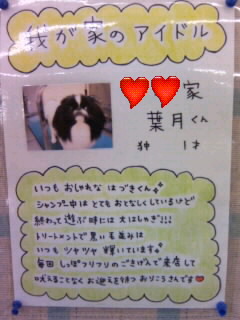 我が家のアイドル
家
葉月くん
狆 1才
いつもおしゃれな はづきくん
シャンプー中は とても おとなしくしているけど
終わって遊ぶ時には 大はしゃぎ!!!
トリートメントで黒い毛並みは
いつも ツヤツヤ 輝いています。
毎回 しっぽフリフリの ごきげんで来店して
吠えることなく お迎えを待つ おりこうさんです